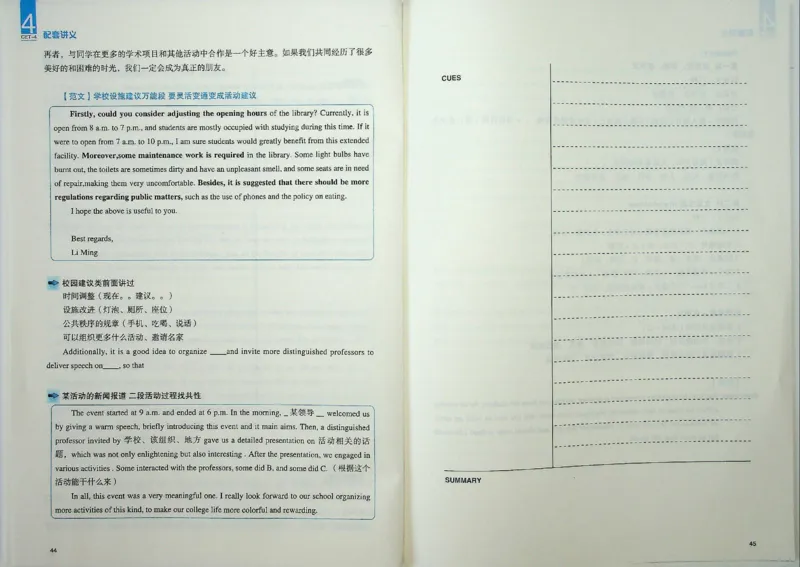 4
CET-4
配套讲义
再者，与同学在更多的学术项目和其他活动中合作是一个好主意。如果我们共同经历了很多
美好的和困难的时光，我们一定会成为真正的朋友。
【范文】学校设施建议万能段 要灵活变通变成活动建议
Firstly, could you consider adjusting the opening hours of the library? Currently, it is
open from 8 a.m. to 7 p.m., and students are mostly occupied with studying during this time. If it
were to open from 7 a.m. to 10 p.m., I am sure students would greatly benefit from this extended
facility. Moreover,some maintenance work is required in the library. Some light bulbs have
burnt out, the toilets are sometimes dirty and have an unpleasant smell, and some seats are in need
of repair,making them very uncomfortable. Besides, it is suggested that there should be more
regulations regarding public matters, such as the use of phones and the policy on eating.
I hope the above is useful to you.
Best regards,
Li Ming
校园建议类前面讲过
时间调整（现在。。建议。。）
设施改进（灯泡、厕所、座位）
公共秩序的规章（手机、吃喝、说话）
可以组织更多什么活动、邀请名家
Additionally, it is a good idea to organize ____and invite more distinguished professors to
deliver speech on____, so that
某活动的新闻报道 二段活动过程找共性
The event started at 9 a.m. and ended at 6 p.m. In the morning, _ 某领导 __ welcomed us
by giving a warm speech, briefly introducing this event and it main aims. Then, a distinguished
professor invited by 学校、该组织、地方 gave us a detailed presentation on 活动相关的话
题，which was not only enlightening but also interesting . After the presentation, we engaged in
various activities . Some interacted with the professors, some did B, and some did C.（根据这个
活动能干什么来）
In all, this event was a very meaningful one. I really look forward to our school organizing
more activities of this kind, to make our college life more colorful and rewarding.
44
CUES
SUMMARY
45